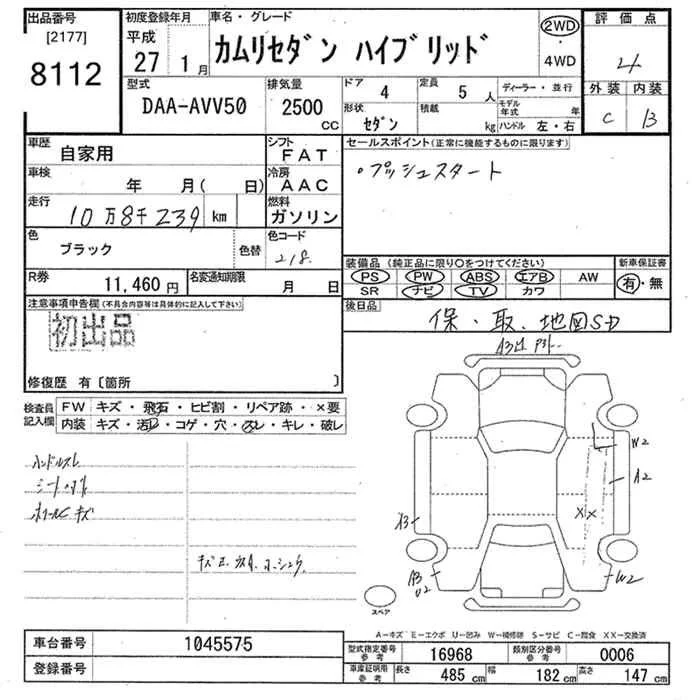 出品番号
[2177]
8112
初度登録年月
平成
27 1月
車名・グレード
カムリセダン ハイブリッド
2WD
・
4WD
評価点
4
外装 内装
C B
型式
DAA-AVV50
排気量
2500
CC
ドア 4
定員 5人
形状
セダン
積載
kg
ディーラー・並行
モデル年式 年
ハンドル 左・右
車歴
自家用
シフト
FAT
車検
年 月( 日)
冷房
AAC
走行
10万8千239 km
燃料
ガソリン
色
ブラック
色替
色コード
218.
R券
11,460円
名変通知期限
月 日
セールスポイント(正常に機能するものに限ります)
・プッシュスタート
装備品(純正品に限り○をつけてください)
PS PW ABS エアB AW
SR ナビ TV カワ
新車保証書
有・無
後日品
保・取、地図SD
注意事項申告欄(不具合内容等は具体的に記入して下さい)
初出品
修復歴 有〔箇所 〕
検査員
記入欄
FW キズ・飛石・ヒビ割・リペア跡・×要
内装 キズ・汚レ・コゲ・穴・スレ・キレ・破レ
ハンドルスレ
ホイールC キズ
W2
A2
XX
A3
A3
U2
W2
スペア
A-キズ E-エクボ U-凹み W-補修跡 S-サビ C-腐食 XX-交換済
車台番号
1045575
登録番号
型式指定番号
参考
16968
類別区分番号
参考
0006
車庫証明用
参考
長さ 485cm
幅 182cm
高さ 147cm